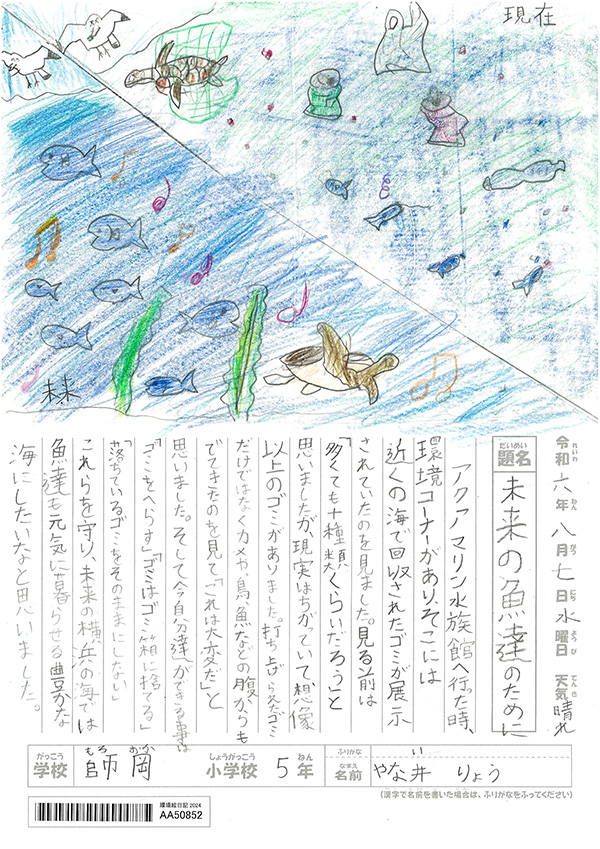 現在
未来
令和六年八月七日水曜日 天気晴れ
れいわ ねん がつ にち ようび てんき
だいめい
題名
未来の魚達のために
アクアマリン水族館へ行った時、
環境コーナーがあり、そこには
近くの海で回収されたゴミが展示
されていたのを見ました。見る前は
「多くても十種類くらいだろう」と
思いましたが、現実はちがっていて想像
以上のゴミがありました。打ち上げられたゴミ
だけではなくカメや、鳥、魚などの腹からも
でてきたのを見て「これは大変だ」と
思いました。そして今自分達ができる事は
「ゴミをへらす」「ゴミはゴミ箱に捨てる」
「落ちているゴミをそのままにしない」
これらを守り、未来の横浜の海では
魚達も元気に暮らせる豊かな
海にしたいなと思いました。
がっこう もろ おか しょうがっこう ねん ふりがな い
学校 師岡 小学校 5年 なまえ 名前 やな井 りょう
(漢字で名前を書いた場合は、ふりがなをふってください)
環境絵日記 2024
AA50852